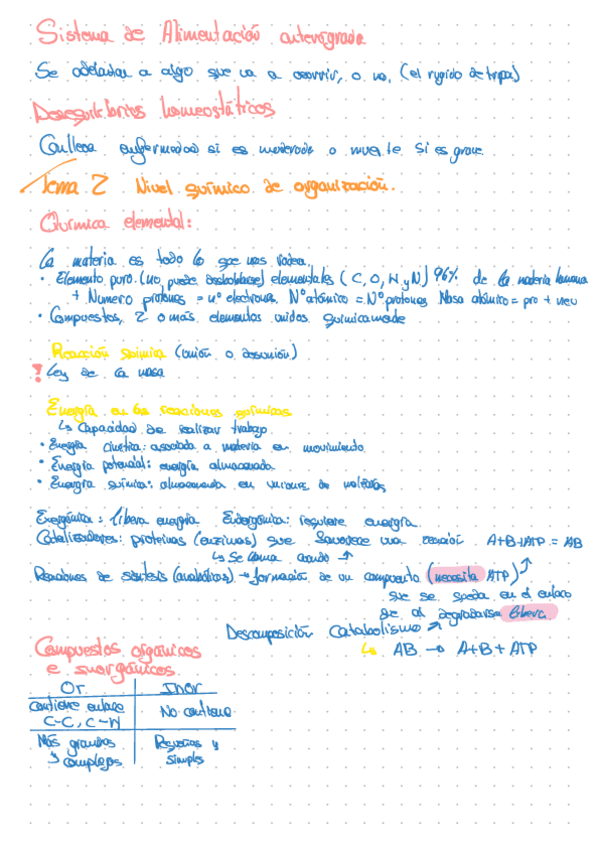 Sistema de Alimentación anterógrada
Se adelantar a algo que va a ocurrir, o no, (el rugido de tripas)
Desequilibrios homeostáticos
Conlleva enfermedad si es moderado o muerte si es grave
Tema 2 Nivel químico de organización.
Química elemental:
La materia es todo lo que nos rodea.
• Elemento puro. (no puede desdoblarse) elementales (C, O, H y N) 96% de la materia humana
+ Numero protones = nº electrones, Nº atómico = Nº protones Masa atómico = pro + neu
• Compuestos, 2 o más elementos unidos químicamente
Reacción química (unión o desunión)
! Ley de la masa
Energía en las reacciones químicas
↳ Capacidad de realizar trabajo
• Energía cinética: asociada a materia en movimiento
• Energía potencial: energía almacenada
• Energía química: almacenada en uniones de moléculas
Exergónica: libera energía Endergónica: requiere energía
Catalizadores: proteínas (enzimas) que favorece una reacción A+B+ATP = AB
↳ Se llama cuando →
Reacciones de síntesis (anabólicas) → formación de un compuesto (necesita ATP)
que se queda en el enlace
que al degradarse libera
Descomposición Catabolismo
↳ AB → A+B+ATP
Compuestos orgánicos
e inorgánicos
Or Inor
contiene enlace No contiene
C-C, C-H
Más grandes Pequeñas y
y complejos simples